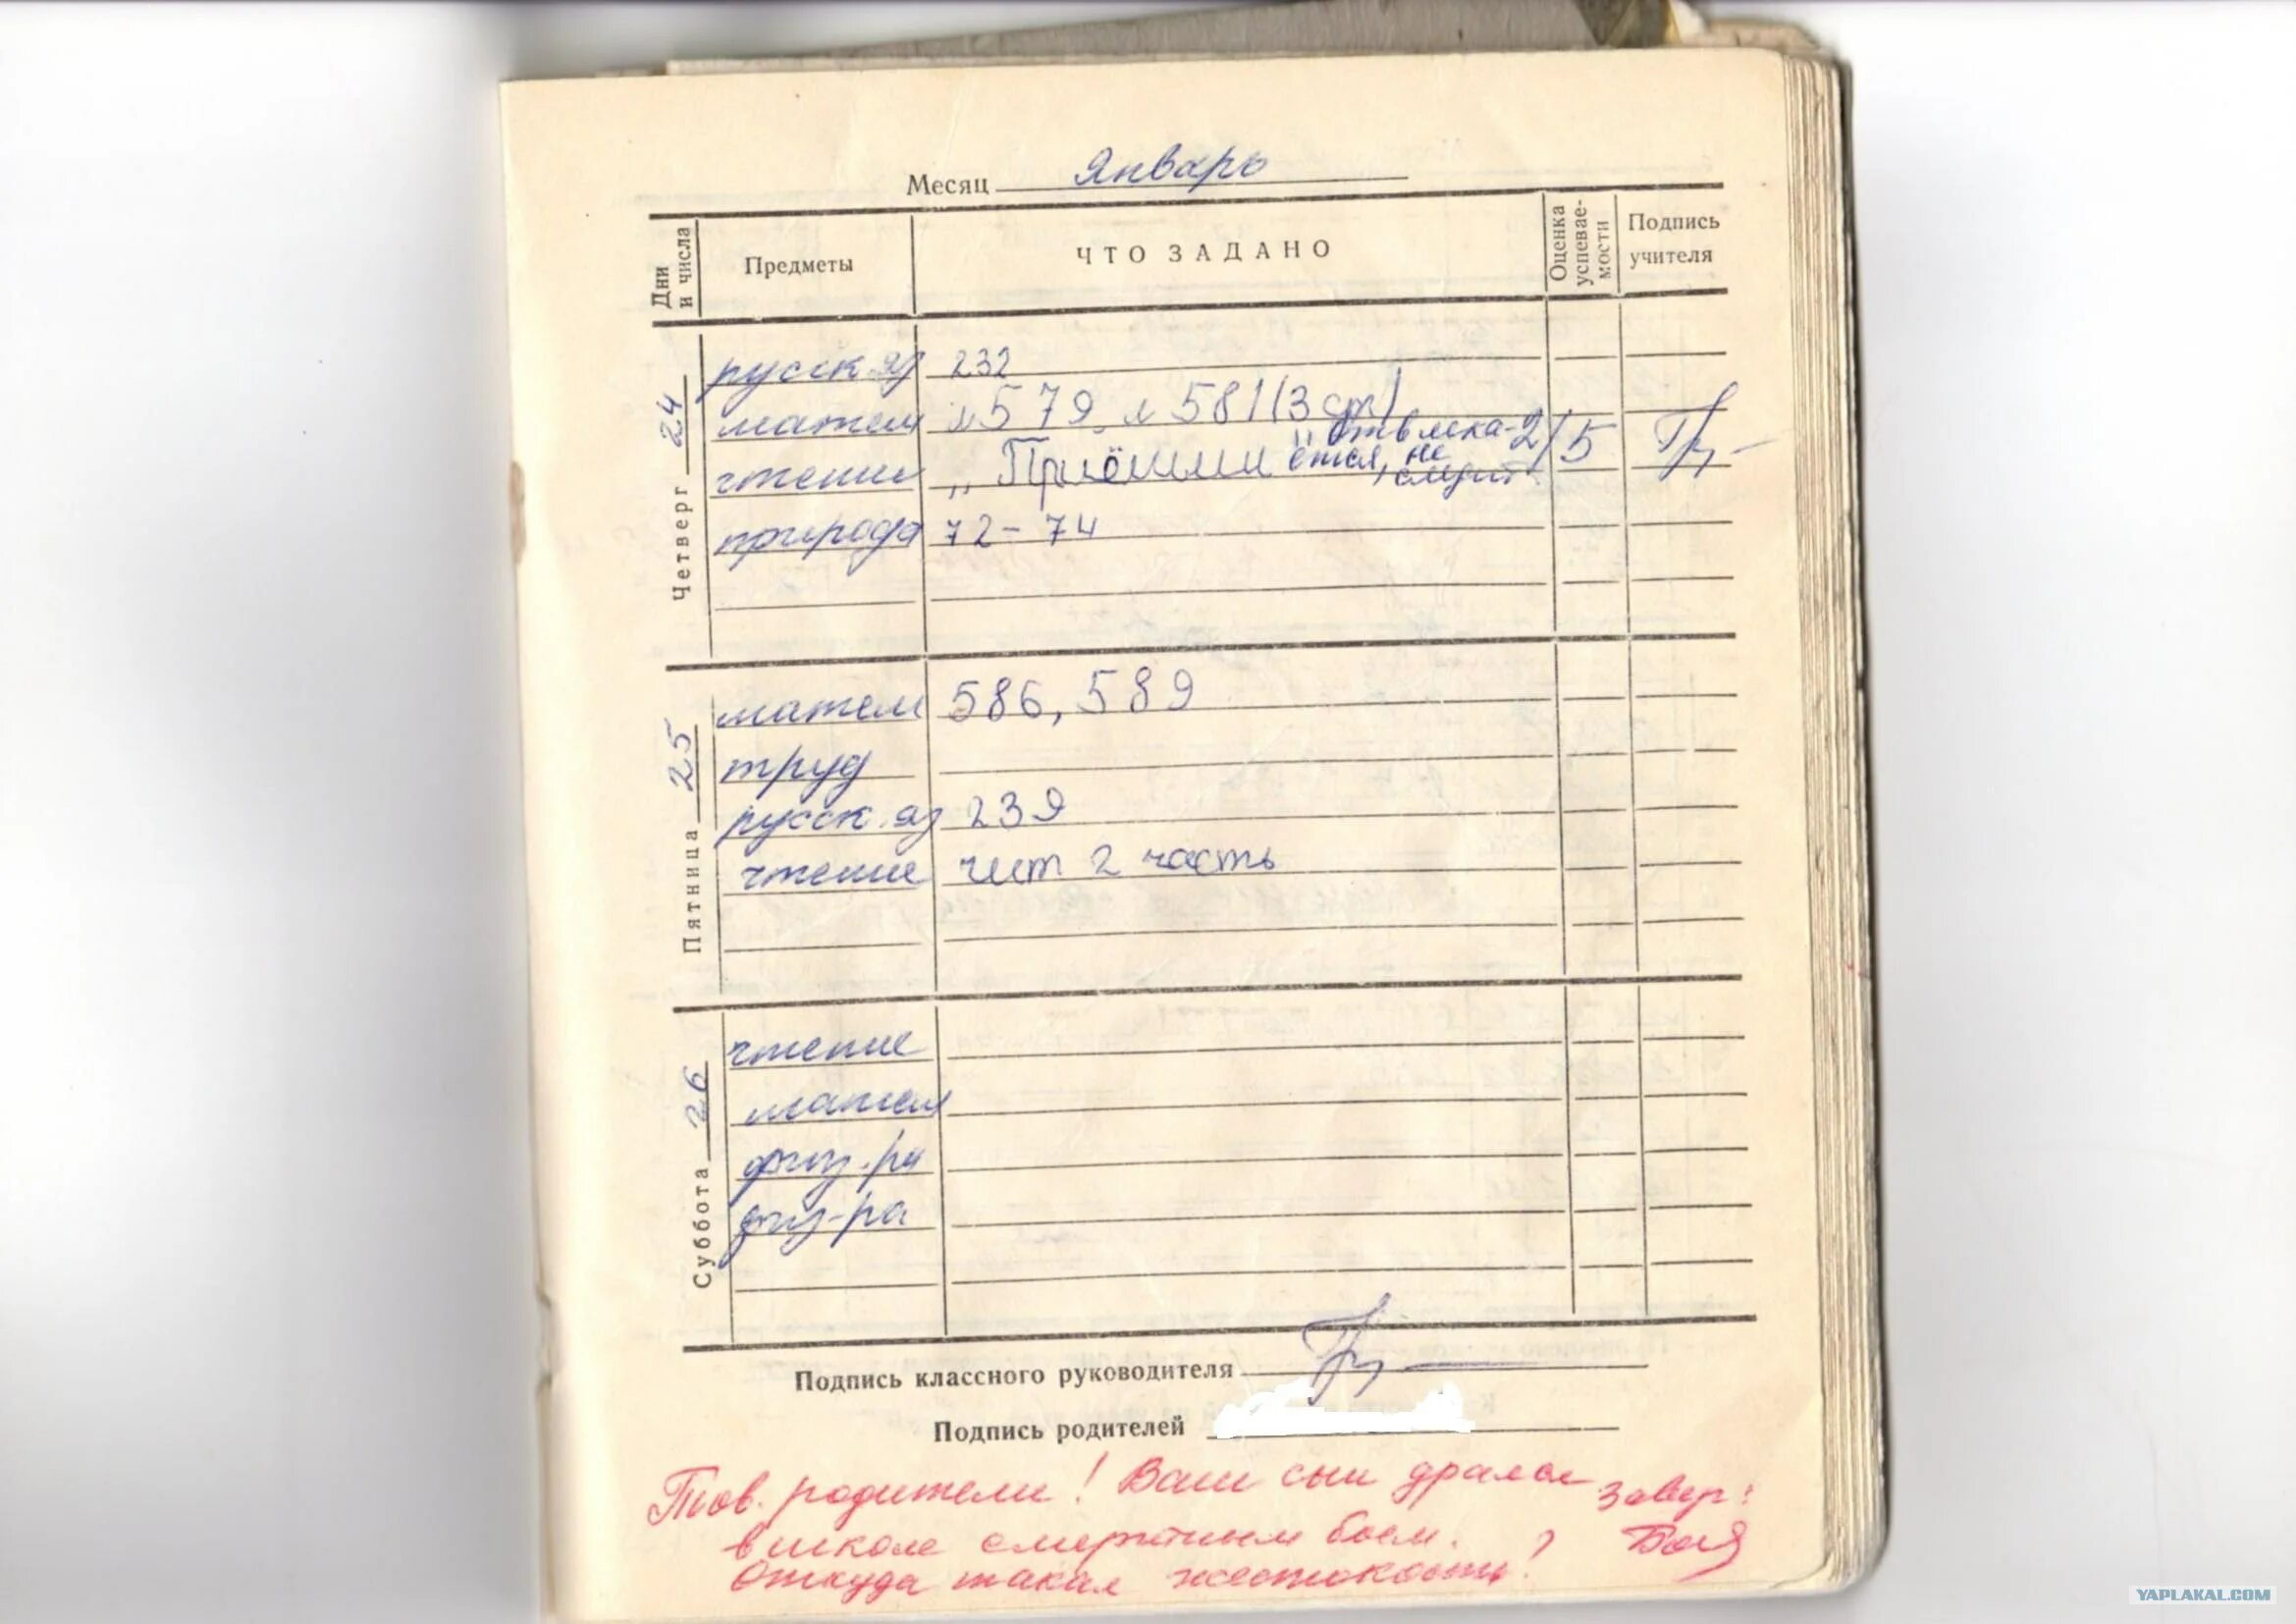 Месяц Январь
Дни и числа Предметы ЧТО ЗАДАНО Оценка успевае-мости Подпись учителя
Четверг 24
русск.яз 232
матем №579, №581(3 ст)
чтение „Приёмыш" отвлека-ется, не следит. 2/5
природа 72-74
Пятница 25
матем 586, 589
труд
русск.яз 239
чтение чит 2 часть
Суббота 26
чтение
матем
физ-ра
физ-ра
Подпись классного руководителя
Подпись родителей
Тов. родители! Ваш сын дрался
в школе смертным боем.
Откуда такая жестокость?
YAPLAKAL.COM